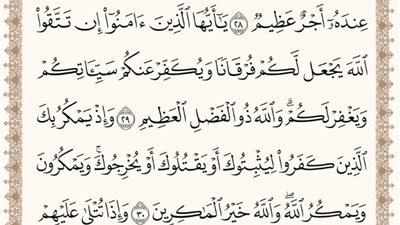 عِندَهُۥٓ أَجْرٌ عَظِيمٌ ٢٨ يَٰٓأَيُّهَا ٱلَّذِينَ ءَامَنُوٓا۟ إِن تَتَّقُوا۟
ٱللَّهَ يَجْعَل لَّكُمْ فُرْقَانًا وَيُكَفِّرْ عَنكُمْ سَيِّـَٔاتِكُمْ
وَيَغْفِرْ لَكُمْ ۗ وَٱللَّهُ ذُو ٱلْفَضْلِ ٱلْعَظِيمِ ٢٩ وَإِذْ يَمْكُرُ بِكَ
ٱلَّذِينَ كَفَرُوا۟ لِيُثْبِتُوكَ أَوْ يَقْتُلُوكَ أَوْ يُخْرِجُوكَ ۚ وَيَمْكُرُونَ
وَيَمْكُرُ ٱللَّهُ ۖ وَٱللَّهُ خَيْرُ ٱلْمَٰكِرِينَ ٣٠ وَإِذَا تُتْلَىٰ عَلَيْهِمْ